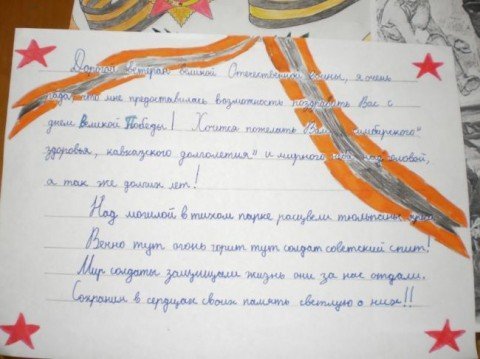 Дорогой ветеран великой Отечественной войны, я очень
рада, что мне предоставилась возможность поздравить Вас с
днем великой Победы! Хочется пожелать Вам „сибирского"
здоровья, „кавказского долголетия" и мирного неба над головой,
а так же долгих лет!
Над могилой в тихом парке расцвели тюльпаны ярко
Вечно тут огонь горит тут солдат советский спит!
Мир солдаты защищали жизнь они за нас отдали.
Сохраним в сердцах своих память светлую о них!!